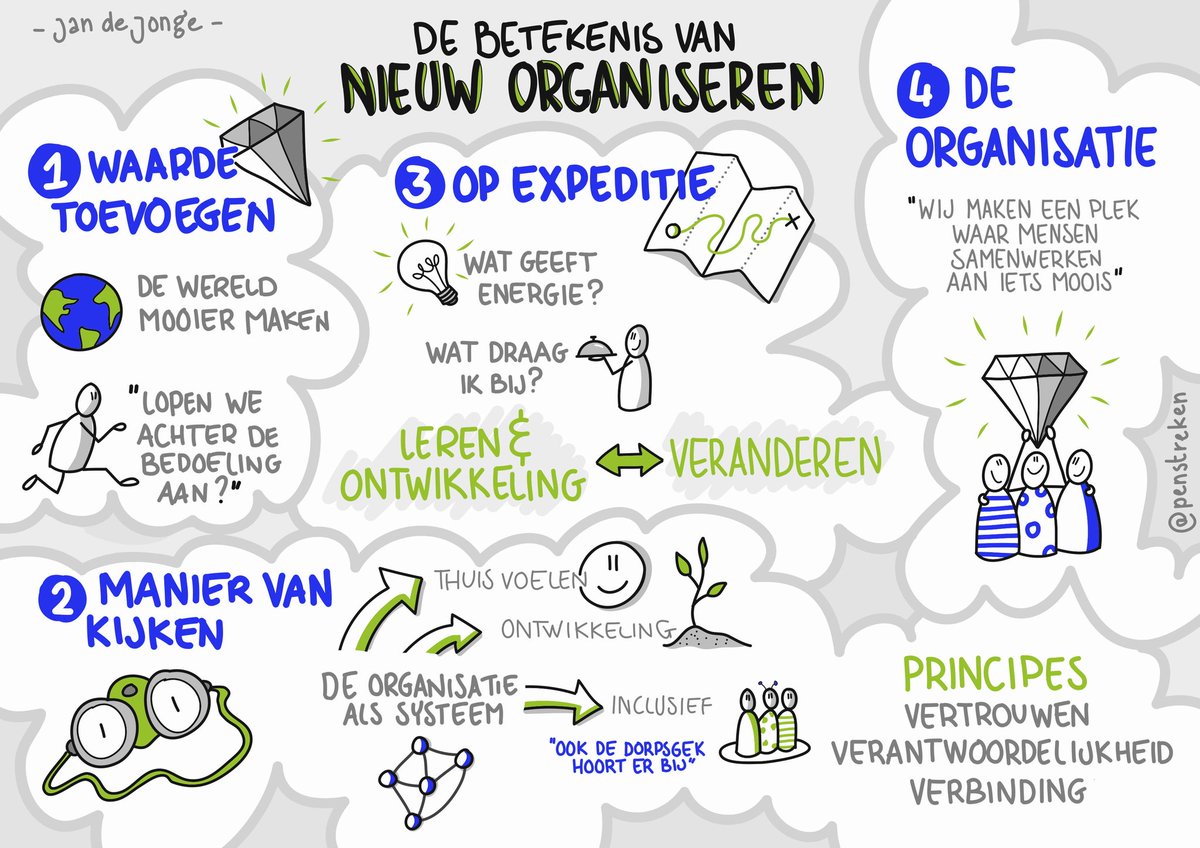 - jan de jonge -
DE BETEKENIS VAN
NIEUW ORGANISEREN
1 WAARDE
TOEVOEGEN
DE WERELD
MOOIER MAKEN
"LOPEN WE
ACHTER DE
BEDOELING
AAN?"
2 MANIER VAN
KIJKEN
THUIS VOELEN
ONTWIKKELING
DE ORGANISATIE
ALS SYSTEEM
INCLUSIEF
"OOK DE DORPSGEK
HOORT ER BIJ"
3 OP EXPEDITIE
WAT GEEFT
ENERGIE?
WAT DRAAG
IK BIJ?
LEREN &
ONTWIKKELING
VERANDEREN
4 DE
ORGANISATIE
"WIJ MAKEN EEN PLEK
WAAR MENSEN
SAMENWERKEN
AAN IETS MOOIS"
PRINCIPES
VERTROUWEN
VERANTWOORDELIJKHEID
VERBINDING
@penstreken